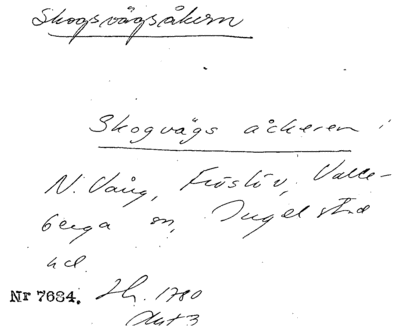 Skogsvägsåkern
Skogvägs åckeren i
N. Vång, Fröslöv, Valle-
berga sn, Ingelstad
hd.
Nr 7684. Lh. 1780
Akt 3